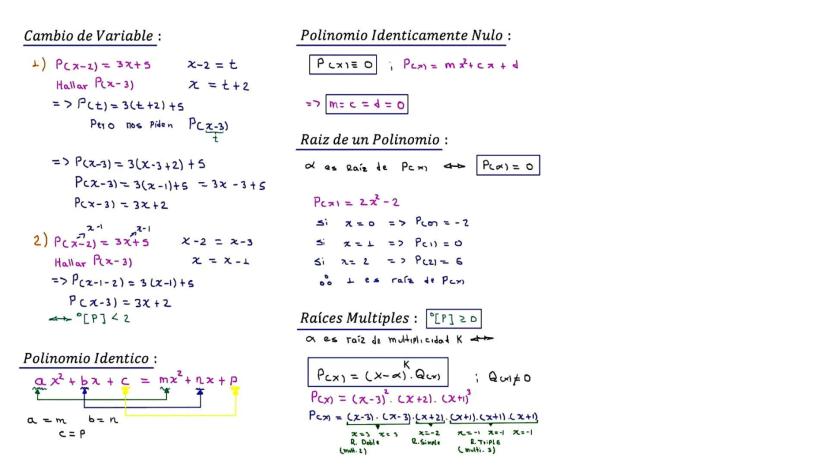 Cambio de Variable :
1) P(x-2) = 3x+5 x-2 = t
Hallar P(x-3) x = t+2
=> P(t) = 3(t+2)+5
Pero nos piden P(x-3)
t
=> P(x-3) = 3(x-3+2)+5
P(x-3) = 3(x-1)+5 = 3x-3+5
P(x-3) = 3x+2
x-1 x-1
2) P(x-2) = 3x+5 x-2 = x-3
Hallar P(x-3) x = x-1
=> P(x-1-2) = 3(x-1)+5
P(x-3) = 3x+2
<-> °[P] < 2
Polinomio Identico :
ax²+bx+c = mx²+nx+p
a = m b = n
c = p
Polinomio Identicamente Nulo :
P(x) ≡ 0 ; P(x) = mx²+cx+d
=> m = c = d = 0
Raiz de un Polinomio :
α es Raíz de P(x) <-> P(α) = 0
P(x) = 2x²-2
Si x = 0 => P(0) = -2
Si x = 1 => P(1) = 0
Si x = 2 => P(2) = 6
∴ 1 es raíz de P(x)
Raíces Multiples : °[P] ≥ 0
α es raíz de multiplicidad K <->
P(x) = (x-α)^K . Q(x) ; Q(x) ≠ 0
P(x) = (x-3)² . (x+2) . (x+1)³
P(x) = (x-3) . (x-3) . (x+2) . (x+1) . (x+1) . (x+1)
x=3 x=3 x=-2 x=-1 x=-1 x=-1
R. Doble R. Simple R. Triple
(multi. 2) (multi. 3)